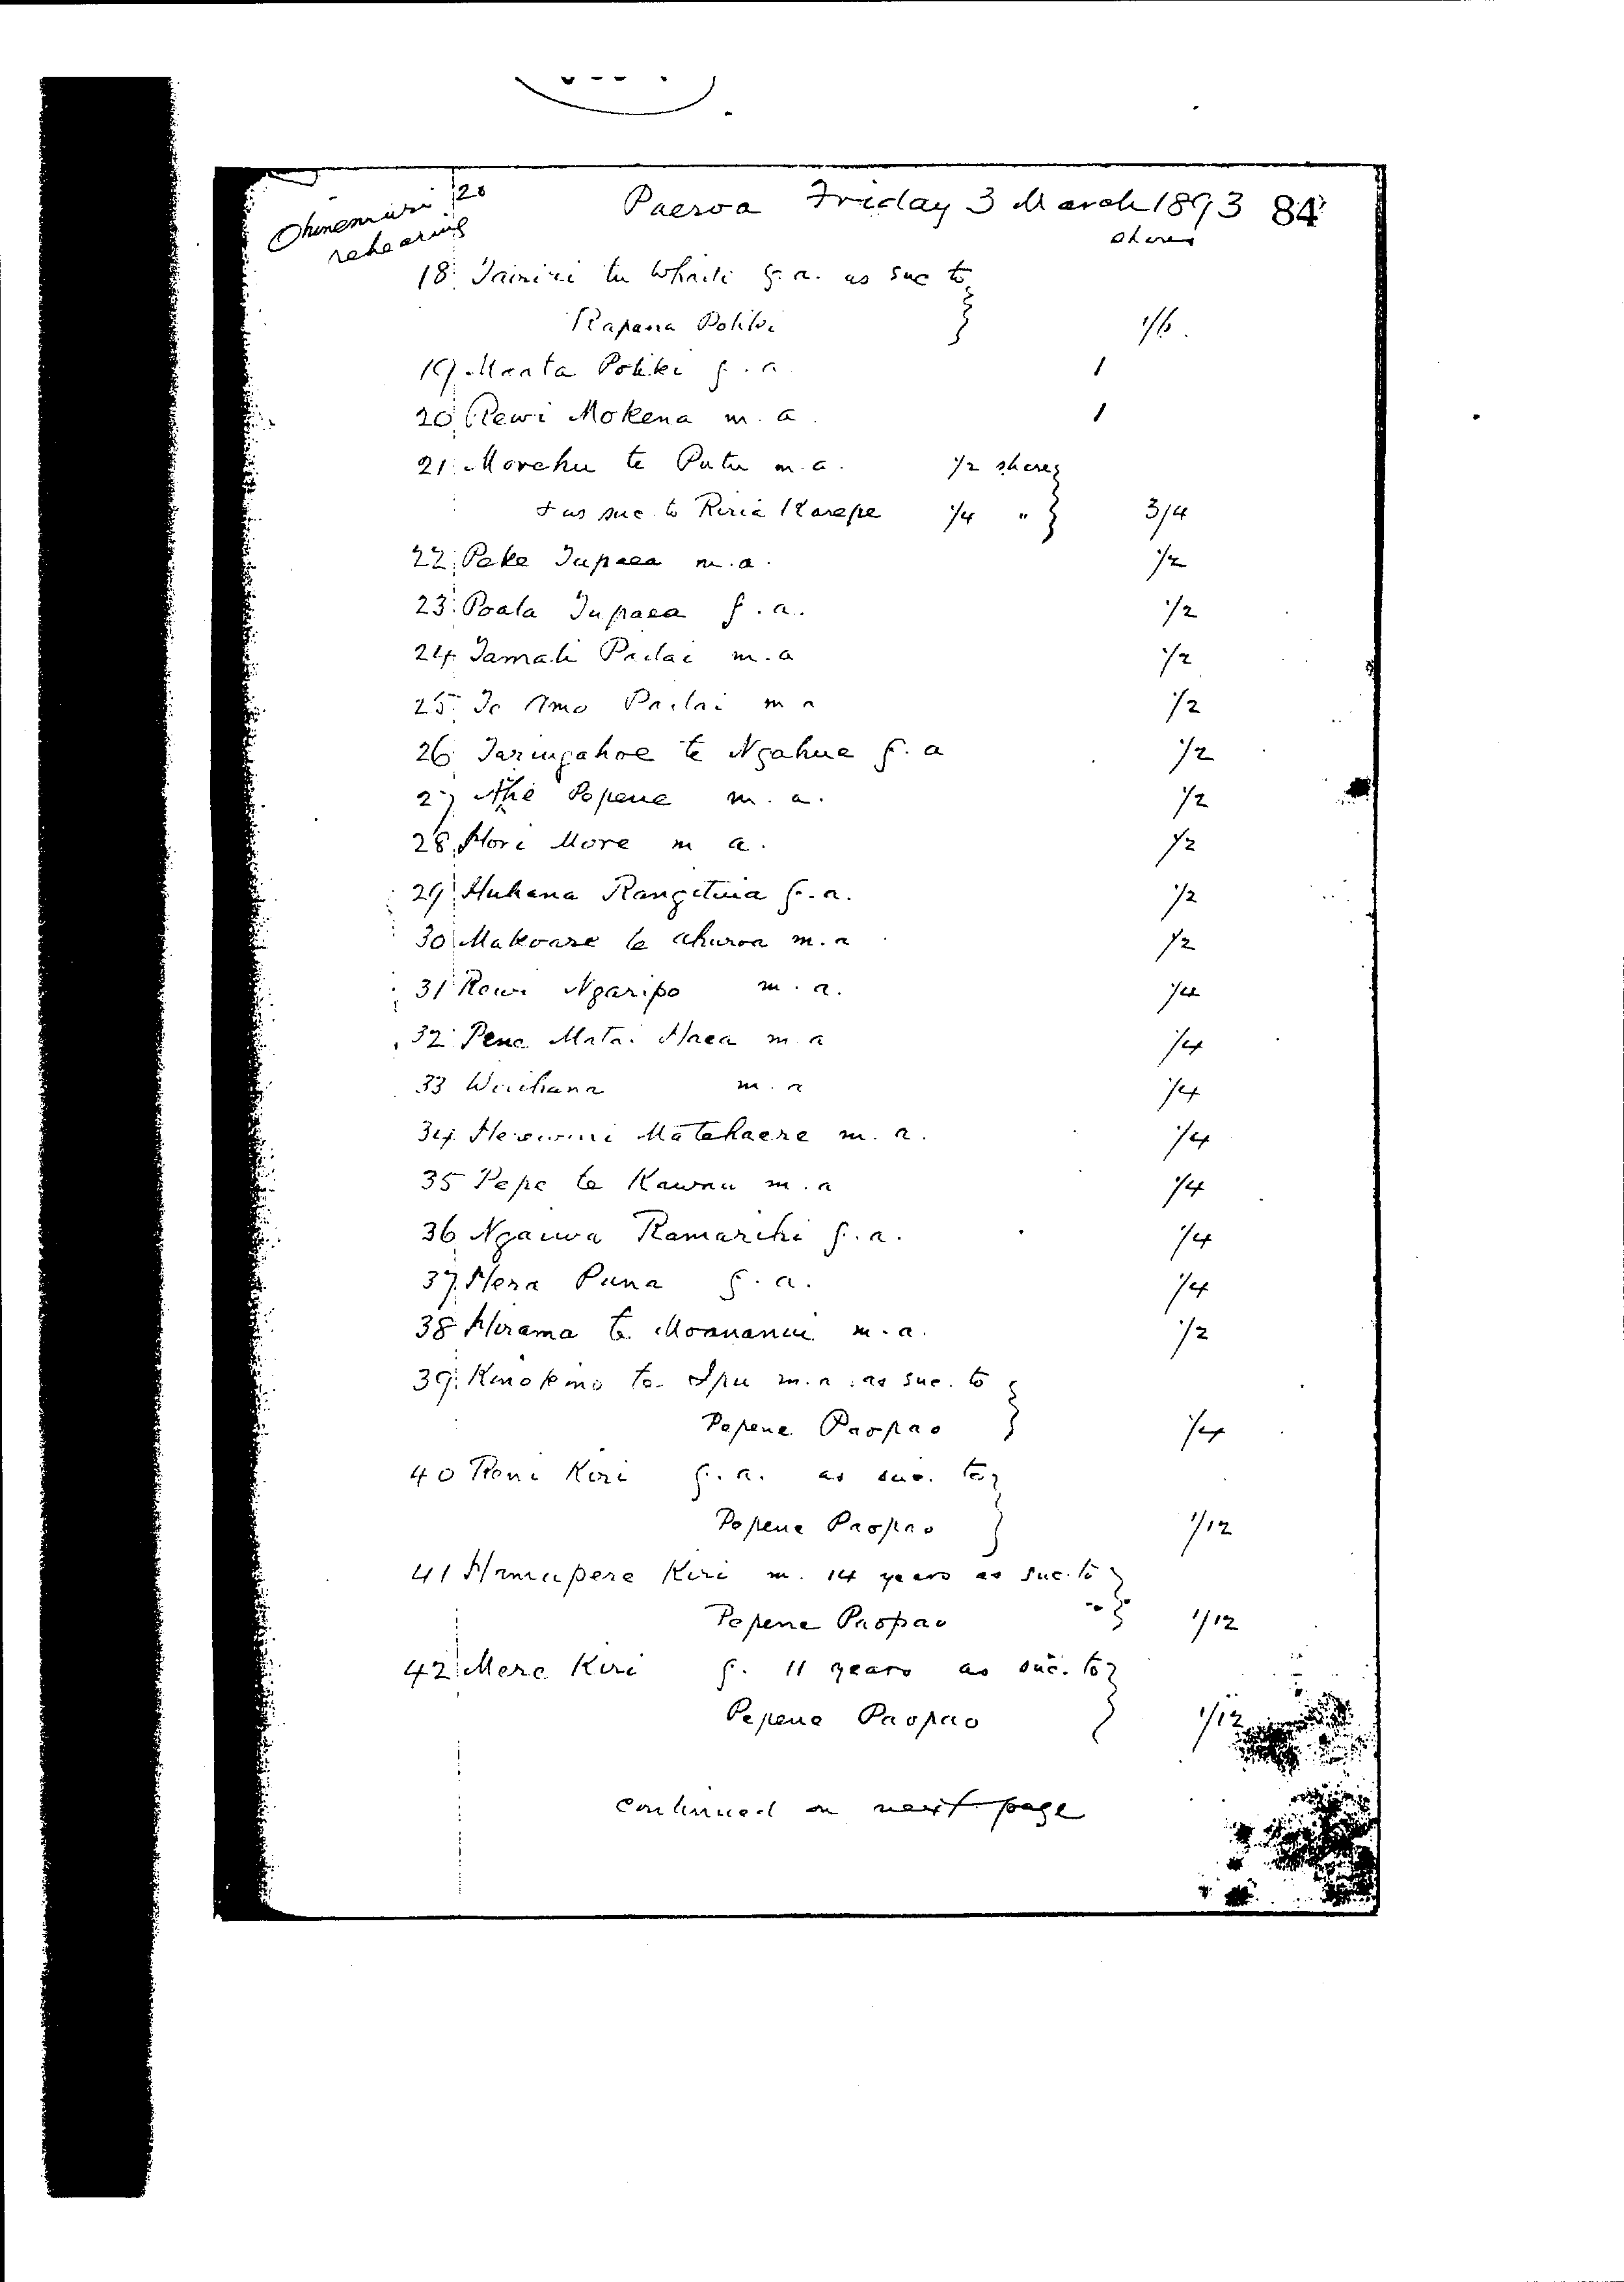 Ohinemuri 20
rehearing
Paeroa Friday 3 March 1893 84
shares
18 Tairiri tu Whaiti f. a. as suc to
Rapana Poliki 1/6
19 Maata Poliki f. a 1
20 Rewi Mokena m. a 1
21 Morehu te Putu m. a. 1/2 shares
+ as suc. to Riria Karepe 1/4 " 3/4
22 Peke Tupaea m. a. 1/2
23 Poata Tupaea f. a. 1/2
24 Tamati Paetai m. a 1/2
25 Te Amo Paetai m a 1/2
26 Taringahoe te Ngahue f. a 1/2
27 Ahie Popene m. a. 1/2
28 Hori More m a. 1/2
29 Huhana Rangituia f. a. 1/2
30 Makoare te Ahuroa m. a 1/2
31 Rewi Ngaripo m. a. 1/4
32 Pene Matai Haea m a 1/4
33 Wirihana m. a 1/4
34 Herewini Matehaere m. a. 1/4
35 Pepe te Kawau m. a 1/4
36 Ngawa Ramarihi f. a. 1/4
37 Hera Puna f. a. 1/4
38 Hirama te Moananui m. a. 1/2
39 Kinokino te Ipu m. a. as suc. to
Popene Paopao 1/4
40 Roni Kiri f. a. as suc. to
Popene Paopao 1/12
41 Hamupere Kiri m. 14 years as suc. to
Popene Paopao 1/12
42 Mere Kiri f. 11 years as suc. to
Pepene Paopao 1/12
continued on next page